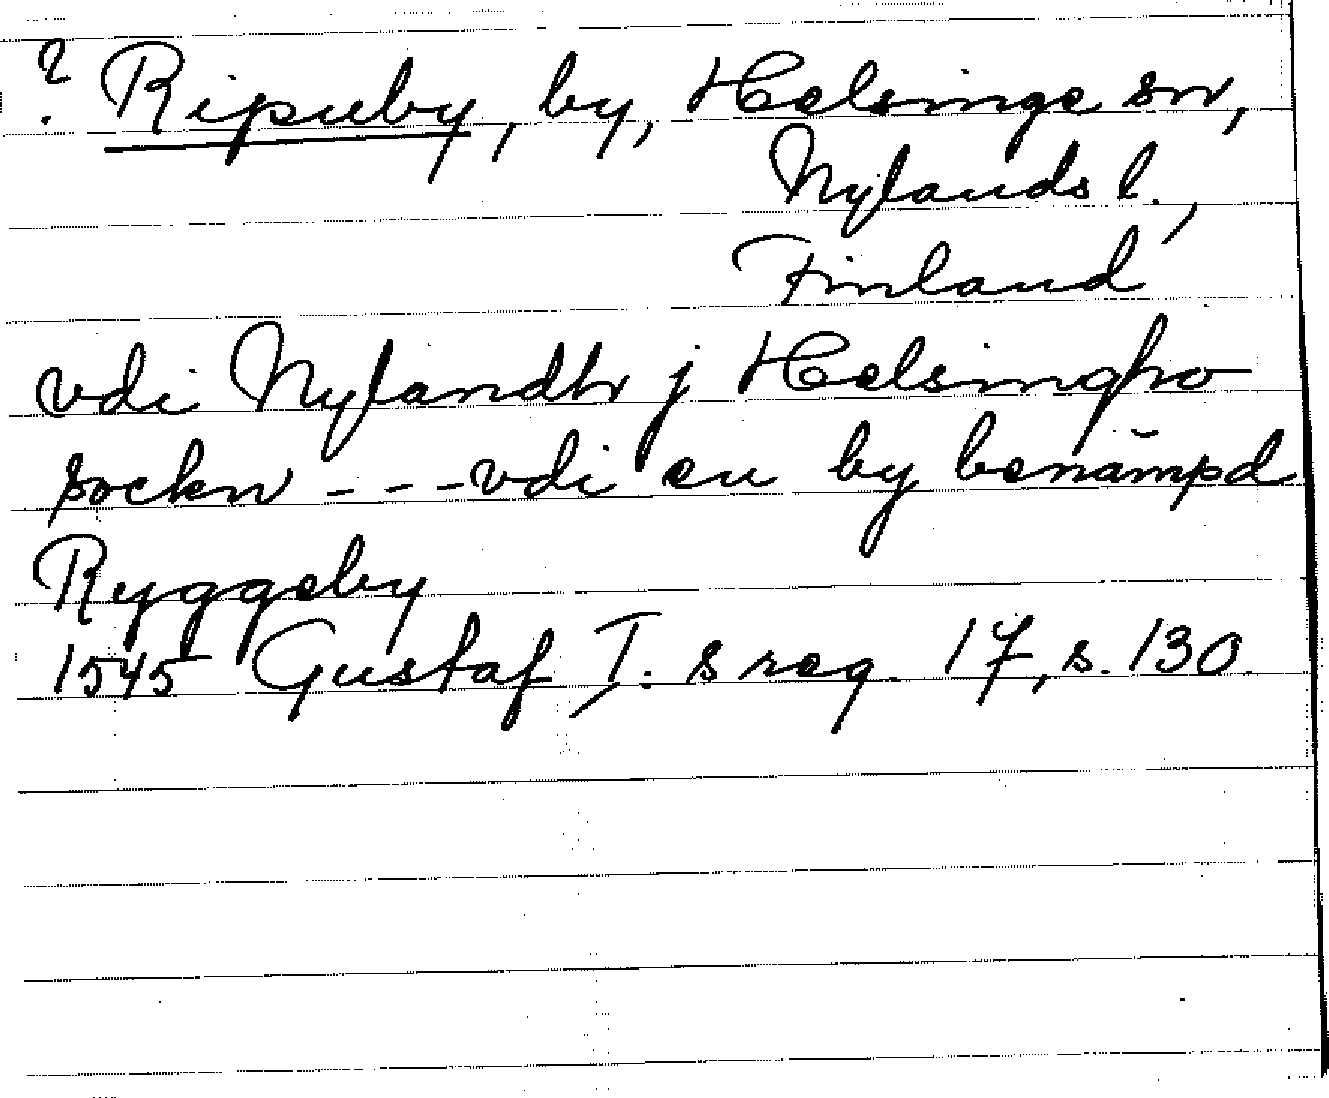 ? Ripuby, by, Helsinge sn,
Nylands l.,
Finland
vdi Nylandh j Helsingho
sockn - - - vdi en by benämpd
Ryggeby
1545 Gustaf I:s reg. 17, s. 130.